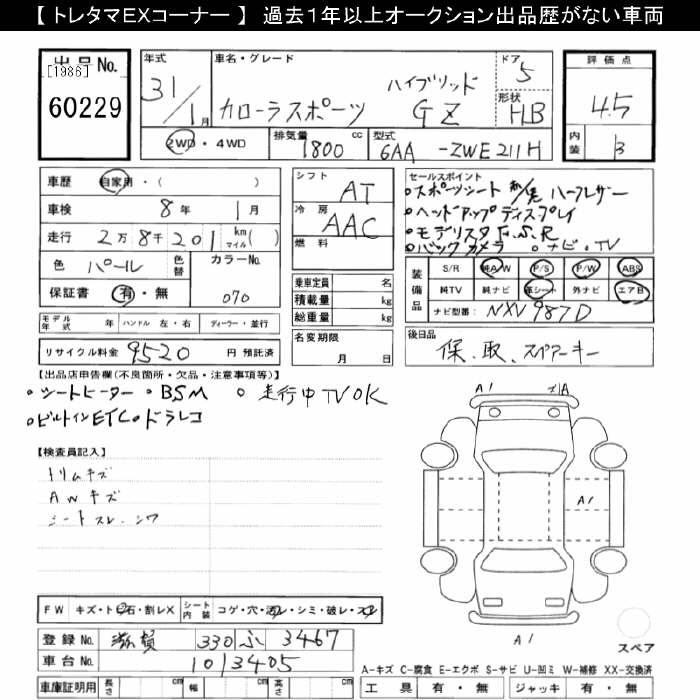 【 トレタマEXコーナー 】 過去１年以上オークション出品歴がない車両
出品 No.
[1986]
60229
年式
31/1月
車名・グレード
カローラスポーツ
ハイブリッド
GZ
ドア 5
形状 HB
評価点
4.5
内装 B
2WD・4WD
排気量 1800 cc
型式 6AA -ZWE211H
車歴 自家用・( )
車検 8年 1月
走行 2万8千201 km マイル( )
色 パール 色替
カラーNo. 070
保証書 有・無
モデル年式 年 ハンドル 左・右 ディーラー・並行
リサイクル料金 9520 円 預託済
シフト AT
冷房 AAC
燃料
乗車定員 名
積載量 kg
総重量 kg
名変期限
月 日
セールスポイント
スポーツシート ハーフレザー
ヘッドアップディスプレイ
モデリスタ F.S.R
バックカメラ ナビ・TV
装備品
S/R 純A/W P/S P/W ABS
純TV 純ナビ 革シート 外ナビ エアB
ナビ型番: NXV987D
後日品
保、取、スペアーキー
【出品店申告欄(不良箇所・欠品・注意事項等)】
シートヒーター ・BSM 走行中TVOK
ビルトインETC ドラレコ
【検査員記入】
トリムキズ
AWキズ
シートスレ、シワ
A1 A1
A1
A1
スペア
FW キズ・ト石・割レX シート内装 コゲ・穴・汚レ・シミ・破レ・スレ
登録 No. 滋賀 330 ふ 3467
車台 No. 1013405
A-キズ C-腐食 E-エクボ S-サビ U-凹ミ W-補修 XX-交換済
車庫証明用 長さ cm 幅 cm 高さ cm
工具 有・無 ジャッキ 有・無